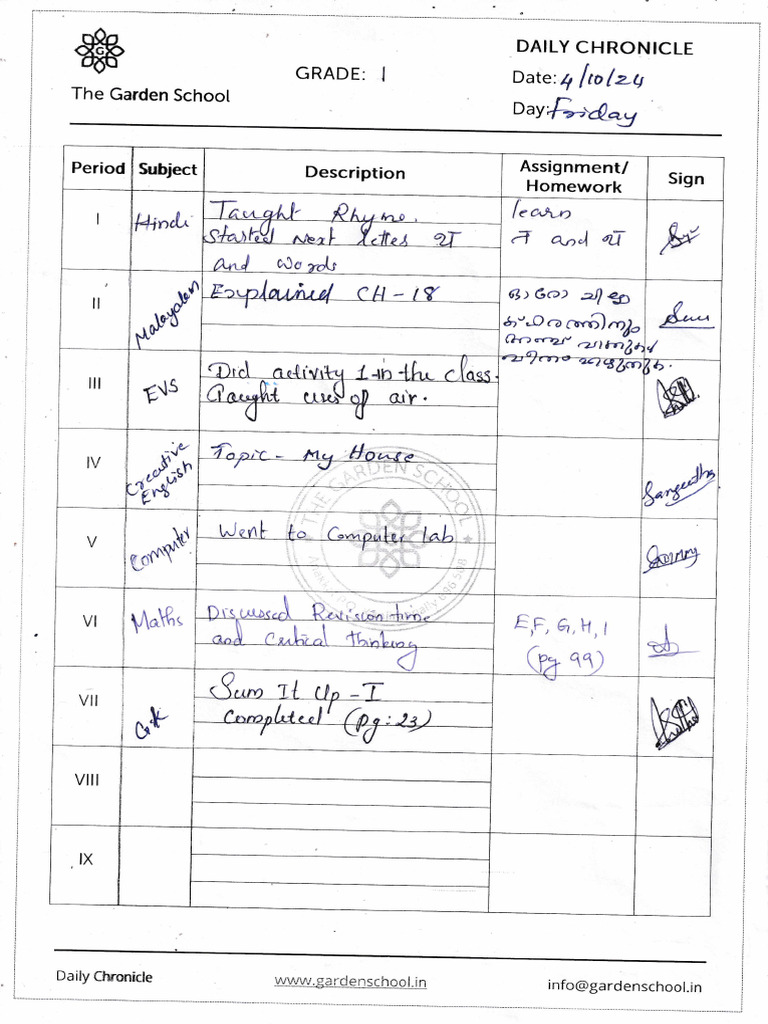 DAILY CHRONICLE
GRADE: 1
Date: 4/10/24
The Garden School
Day: Friday
Period Subject Description Assignment/ Homework Sign
I Hindi Taught Rhyme. learn
Started next letter थ त and थ
and words
II Malayalam Explained CH-18 ഓരോ ചിഹ്ന
അഞ്ച് വാക്കുകൾ
III EVS Did activity 1 in the class.
Taught uses of air.
IV Creative English Topic - My House Sangeetha
V Computer Went to Computer lab
VI Maths Discussed Revision time E, F, G, H, I
and Critical thinking (pg 99)
VII G.K Sum It Up - I
Completed (pg: 23)
VIII
IX
THE GARDEN SCHOOL
Daily Chronicle www.gardenschool.in info@gardenschool.in